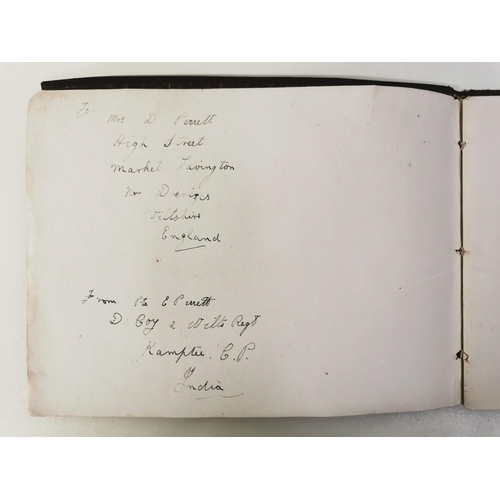 To
Mrs D Perrett
High Street
Market Lavington
Nr Devizes
Wiltshire
England
From Pte E Perrett
D Coy 2 Wilts Regt
Kamptee. C. P.
India